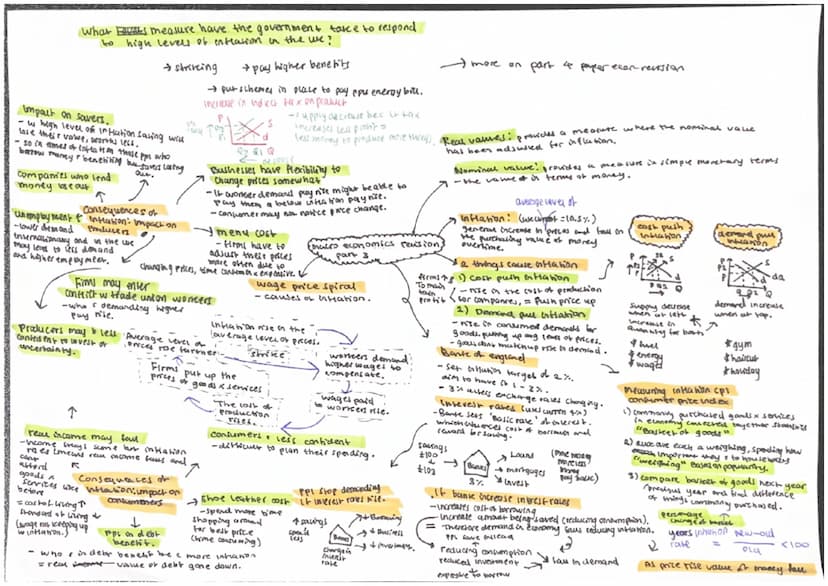 What measure have the government take to respond
to high levels of inflation in the UK?
→ striking → pay higher benefits
→ more on part 4 paper econ revision
→ put schemes in place to pay ppls energy bill.
increase in indirect tax on product
Impact on savers.
- w high level of inflation saving will
lose their value, worth less.
- so in times of inflation those ppl who
borrow money r benefiting
Companies who lend
money lose out
Businesses have flexibility to
change prices somewhat
- if worker demand pay rise might be able to
pay them a below inflation pay rise.
- consumer may not notice price change.
Real values: provides a measure where the nominal value
has been adjusted for inflation.
Nominal value: provides a measure in simple monetary terms
- the value in terms of money.
Consequences of
inflation: impact on
producers
Unemployment
- lower demand
internationally and in the UK
may lead to less demand
and higher unemployment.
menu cost
- firms have to
adjust their prices
more often due to
changing prices, time custom expensive
micro economics revision
part 3
average level of
inflation:
general increase in prices and fall in
the purchasing value of money
overtime.
cost push
inflation
demand pull
inflation
2 things cause inflation
1) cost push inflation
- rise in the cost of production
for companies, = push price up
firms ↑
to main
tain
profit
2) Demand pull inflation
- rise in consumer demands for
goods, putting up avg level of prices.
P S
P2
P1
d
Q2 Q1
supply decrease
when at left
increase in
↑ fuel
↑ energy
↑ wages
demand increase
when at top.
↑ gym
↑ haircut
↑ holiday
Firms may enter
conflict w trade union workers
- who r demanding higher
pay rise.
wage price spiral
- causes of inflation.
Producers may b less
confident to invest or
uncertainty.
Average level of
prices rise further
Inflation rise in the
average level of prices.
strike
workers demand
higher wages to
compensate.
Firms put up the
prices of goods & services
The cost of
production
rises.
wages paid
to workers rise.
Bank of england
- set inflation target of 2%.
aim to have it 1 - 2%.
Interest rates
- Bank sets 'basic rate' of interest.
which influences cost of borrowing and
reward for saving.
savings
£100
↓
£103
Banks
3%
→ loans
→ mortgages
↓ invest
Measuring inflation CPI
consumer price index
1) commonly purchased goods & services
in economy collected together
"basket of goods"
2) give each a weighing, spending how
important they r to households
"weighing" based on popularity.
3) compare basket of goods next year
previous year and find difference
of things commonly purchased.
percentage
years inflation rate = new-old / old × 100
As price rise value of money fall
real income may fall
- income stays same but inflation
rates means real income falls and
cant
afford
goods &
services like
before
Consequences of
inflation: impact on
consumers
= cost of living ↑
standard of living ↓
(wage not keeping up
w inflation).
consumers r less confident
- difficult to plan their spending.
Shoe leather cost
- spend more time
shopping around
for best price
(time consuming)
ppl stop demanding
if interest rates rise.
↑ savings
Banks
change in
interest
rate
↓ Borrowing
↓ Business
↓ investments.
If bank increase interest rates
- increases cost of borrowing
- increase amount being saved (reducing consumption).
= therefore demand in economy falls reducing inflation.
reducing consumption
reduced investment
expensive to borrow
→ fall in demand
ppls in debt
benefit.
- who r in debt benefit bcz more inflation
= real value of debt gone down.